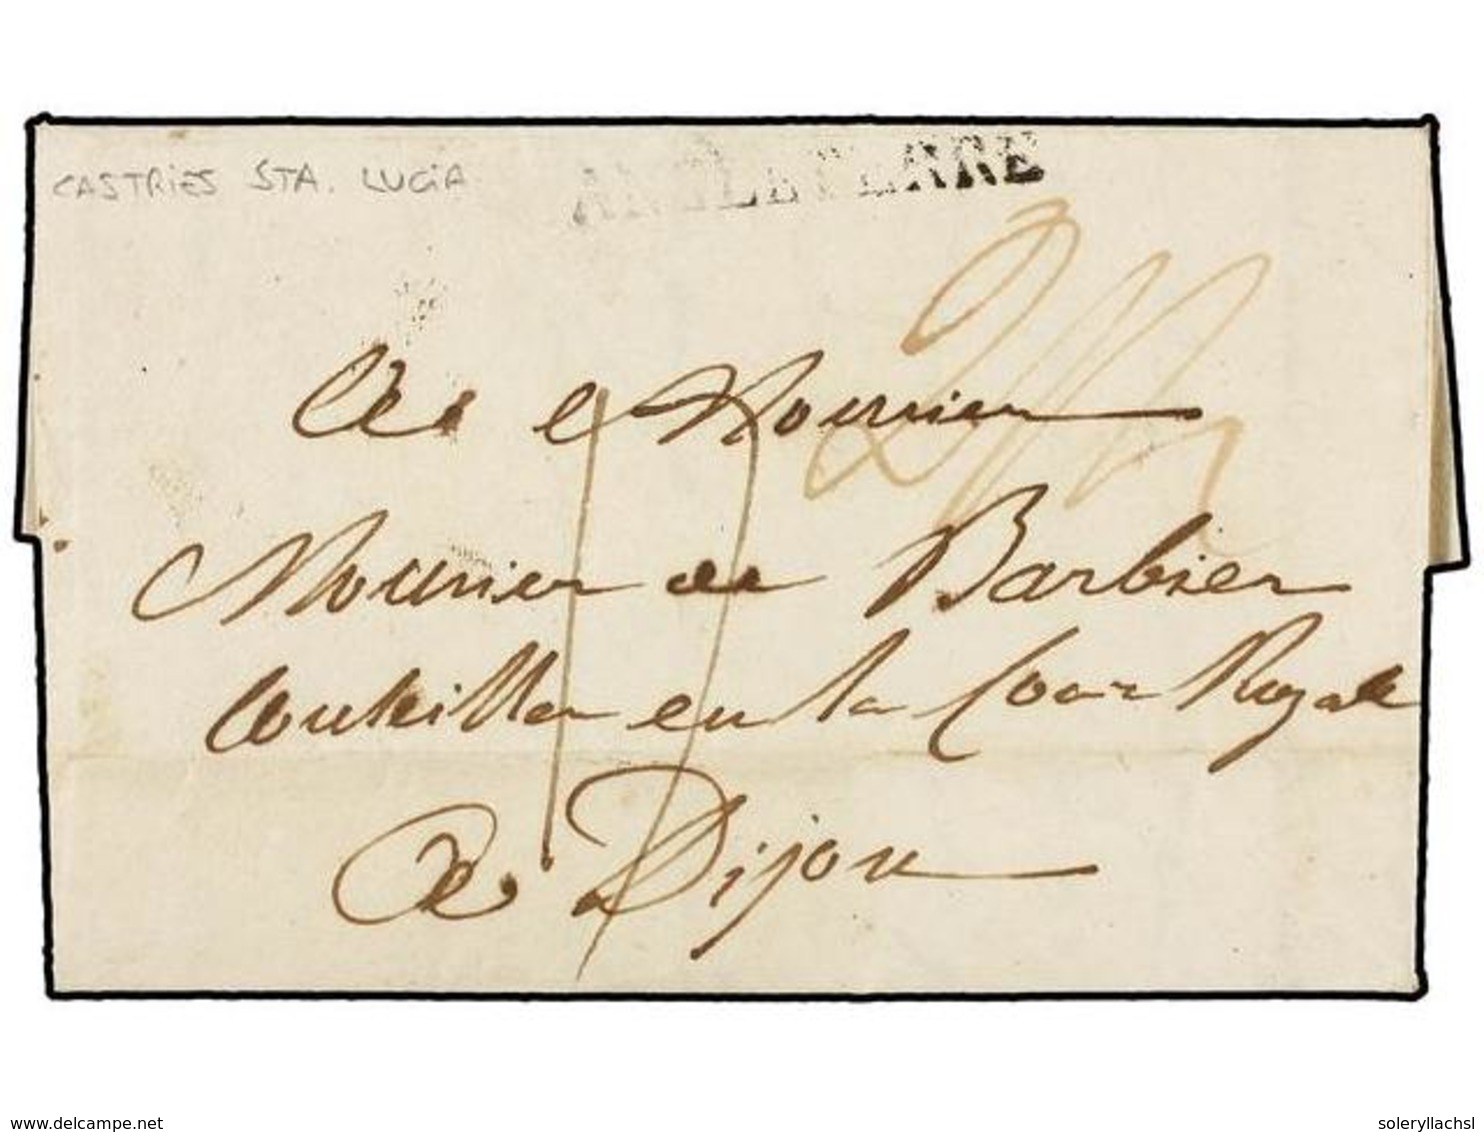 CASTRIES STA. LUCIA
ANGLETERRE
2/2
A Mounier
17
Mounier de Barbier
Conseiller en la Cour Royale
A Dijon
www.delcampe.net
soleryllachsl